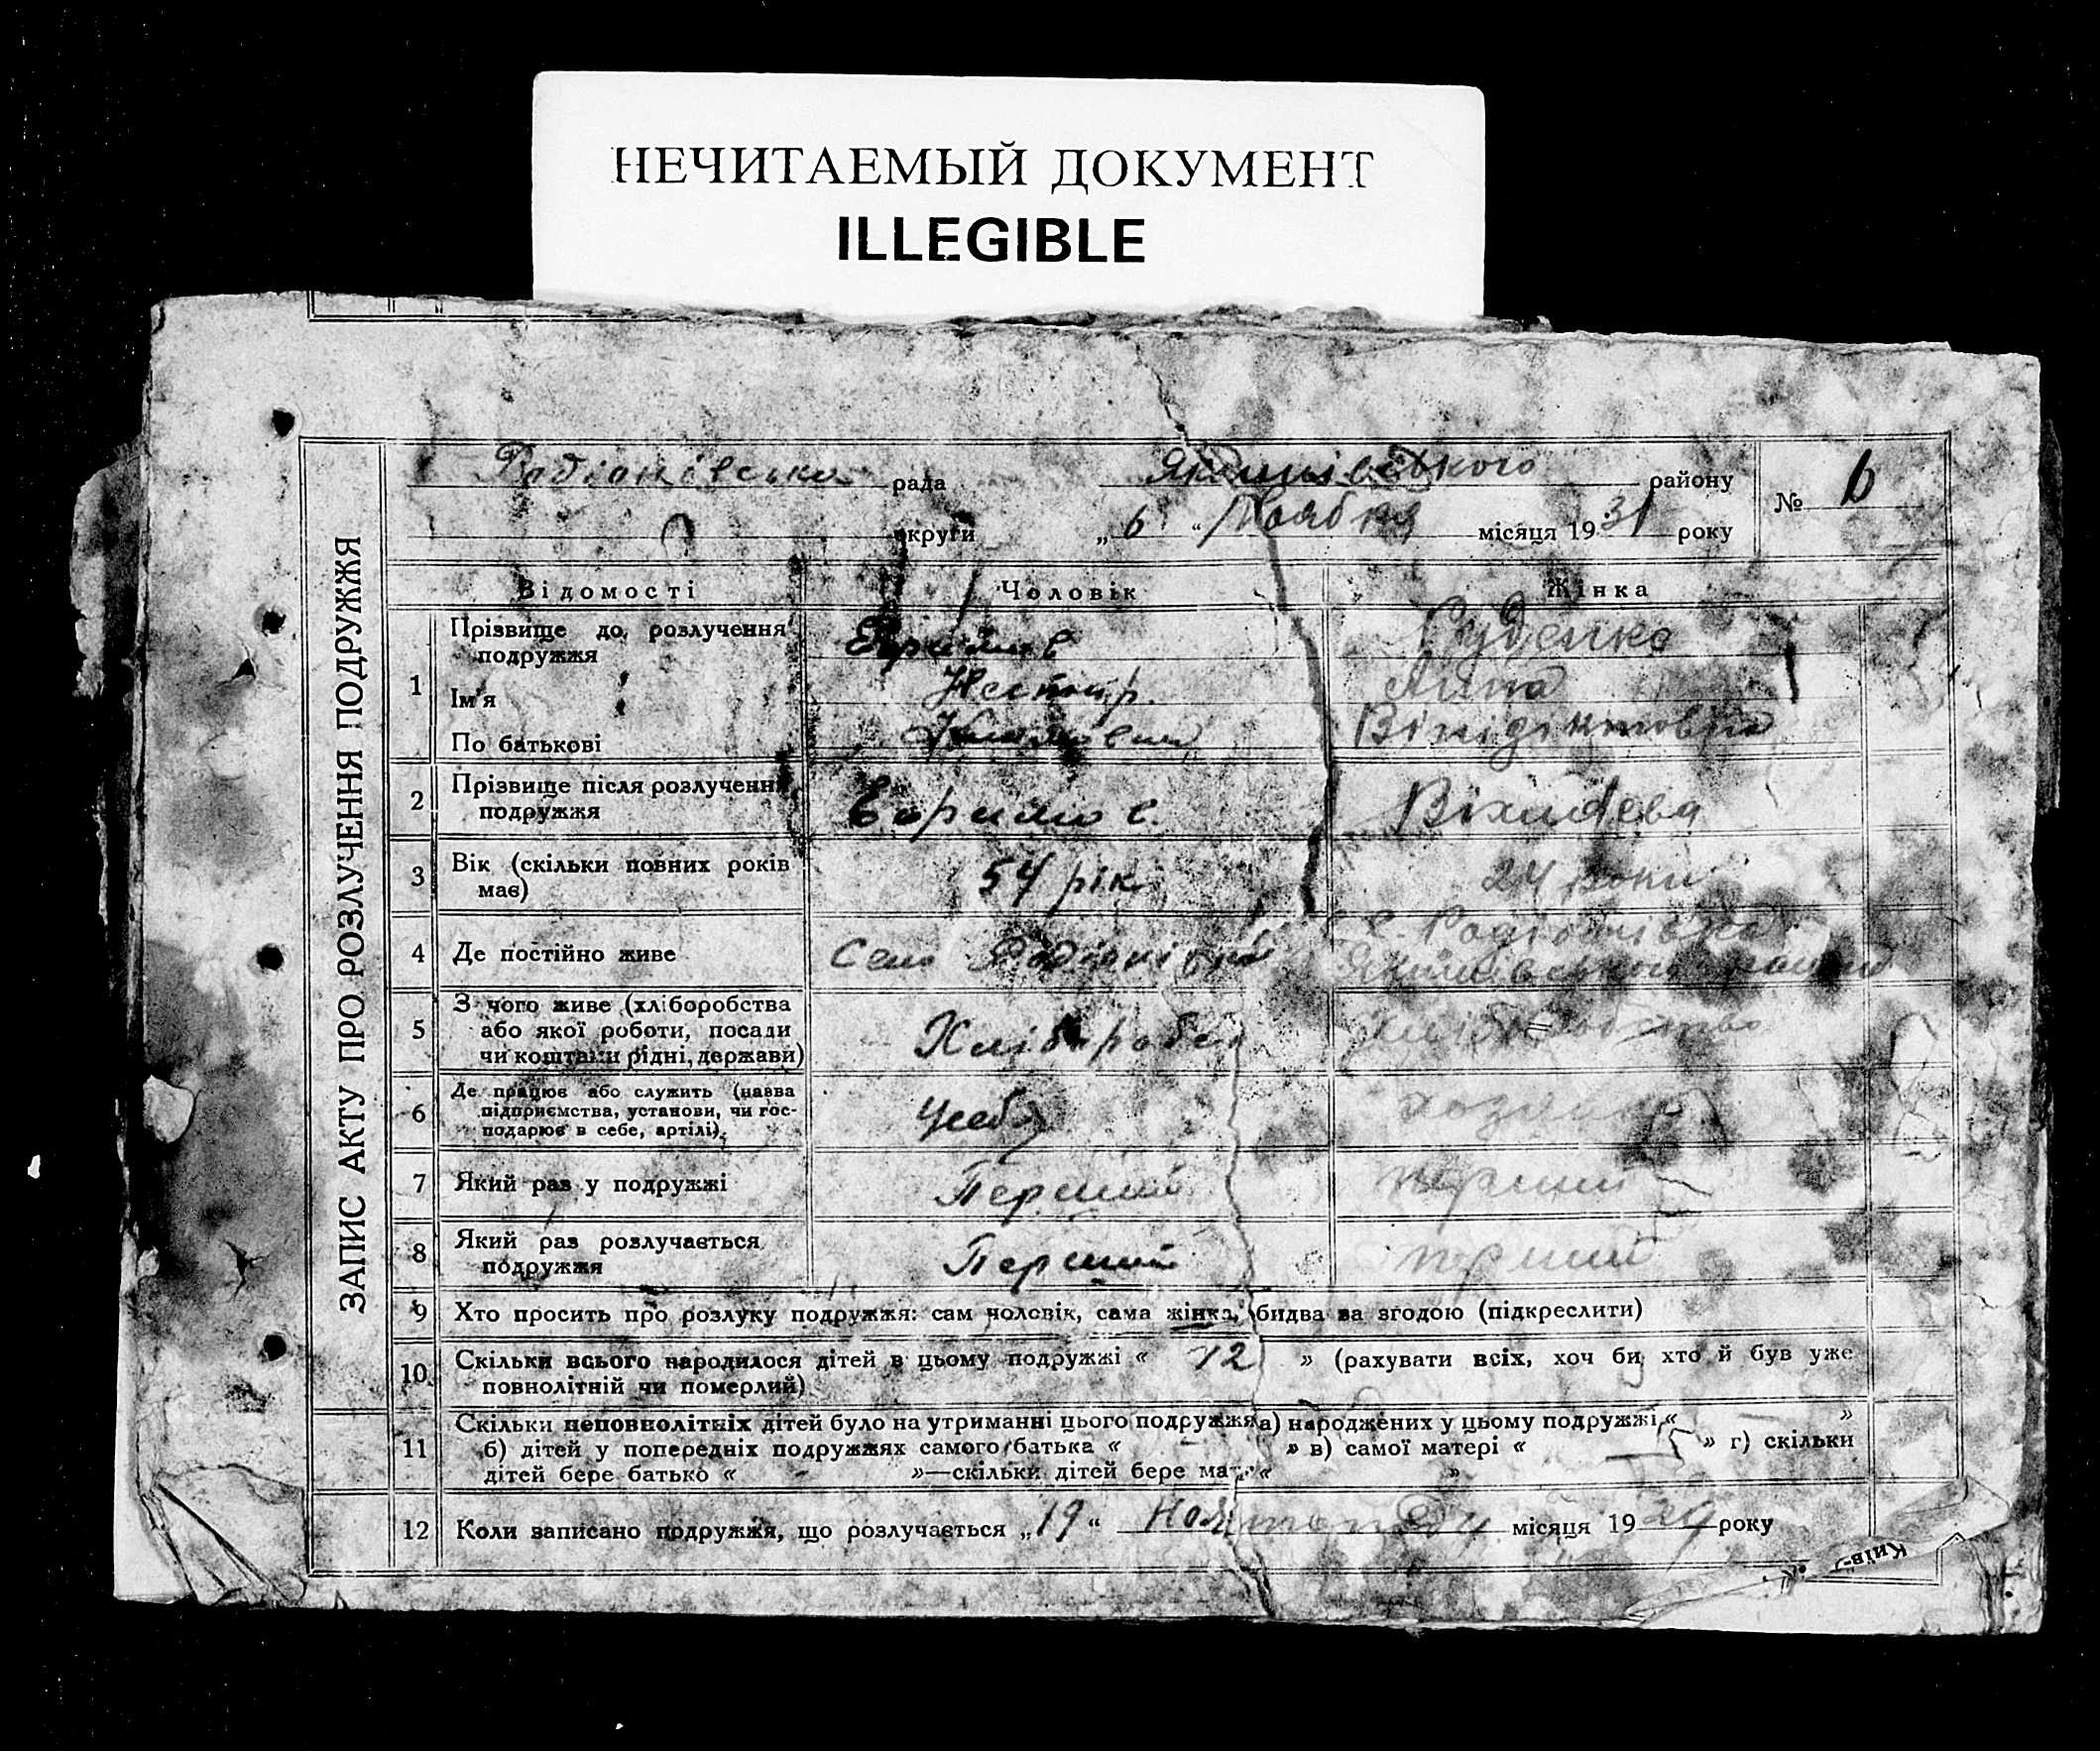 НЕЧИТАЕМЫЙ ДОКУМЕНТ
ILLEGIBLE
ЗАПИС АКТУ ПРО РОЗЛУЧЕННЯ ПОДРУЖЖЯ
Радіонівська рада Якимівського району № 6
округи „6“ Ноября місяця 1931 року
Відомості Чоловік Жінка
1 Прізвище до розлучення подружжя Руденко
Ім'я Нестір Анна
По батькові
2 Прізвище після розлучення подружжя
3 Вік (скільки повних років має) 54 рік 24 роки
4 Де постійно живе Село Радіонівка с. Радіонівка
Якимівського району
5 З чого живе (хліборобства
або якої роботи, посади
чи коштами рідні, держави) Хлібороб
6 Де працює або служить (назва
підприємства, установи, чи гос-
подарює в себе, артілі). Усебе
7 Який раз у подружжі Перший перший
8 Який раз розлучається
подружжя Перший перший
9 Хто просить про розлуку подружжя: сам чоловік, сама жінка, обидва за згодою (підкреслити)
10 Скільки всього народилося дітей в цьому подружжі « » (рахувати всіх, хоч би хто й був уже
повнолітній чи померлий)
11 Скільки неповнолітніх дітей було на утриманні цього подружжя а) народжених у цьому подружжі « »
б) дітей у попередніх подружжях самого батька « - » в) самої матері « — » г) скільки
дітей бере батько « - »—скільки дітей бере мати « »
12 Коли записано подружжя, що розлучається „19“ місяця 1929 року
Київ-